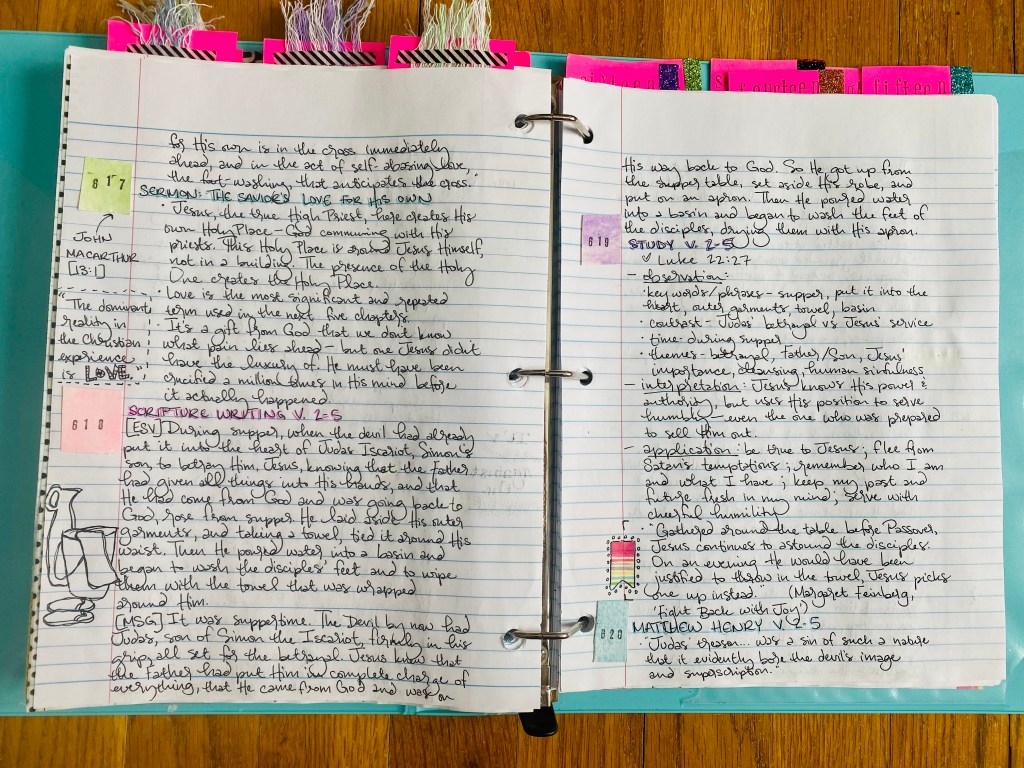 for His own is in the cross immediately
ahead, and in the act of self-abasing love,
the foot-washing, that anticipates the cross."
617
SERMON: THE SAVIOR'S LOVE FOR HIS OWN
JOHN
MACARTHUR
[13:1]
· Jesus, the true High Priest, here creates His
own Holy Place – God communing with His
priests. This Holy Place is around Jesus Himself,
not in a building. The presence of the Holy
One creates the Holy Place.
· Love is the most significant and repeated
term used in the next five chapters.
· It's a gift from God that we don't know
what pain lies ahead – but one Jesus didn't
have the luxury of. He must have been
crucified a million times in His mind before
it actually happened.
"The dominant
reality in
the Christian
experience
is LOVE."
618
SCRIPTURE WRITING V. 2-5
[ESV] During supper, when the devil had already
put it into the heart of Judas Iscariot, Simon's
son, to betray Him, Jesus, knowing that the Father
had given all things into His hands, and that
He had come from God and was going back to
God, rose from supper. He laid aside His outer
garments, and taking a towel, tied it around His
waist. Then He poured water into a basin and
began to wash the disciples' feet and to wipe
them with the towel that was wrapped
around Him.
[MSG] It was suppertime. The Devil by now had
Judas, son of Simon the Iscariot, firmly in his
grip, all set for the betrayal. Jesus knew that
the Father had put Him in complete charge of
everything, that He came from God and was on
fifteen
His way back to God. So He got up from
the supper table, set aside His robe, and
put on an apron. Then He poured water
into a basin and began to wash the feet of
the disciples, drying them with His apron.
619
STUDY V. 2-5
♡ Luke 22:27
– observation:
· key words/phrases – supper, put it into the
heart, outer garments, towel, basin
· contrast – Judas' betrayal vs Jesus' service
· time – during supper
· themes – betrayal, Father/Son, Jesus'
importance, cleansing, human sinfulness
– interpretation: Jesus knows His power &
authority, but uses His position to serve
humbly – even the one who was prepared
to sell Him out.
– application: be true to Jesus; flee from
Satan's temptations; remember who I am
and what I have; keep my past and
future fresh in my mind; serve with
cheerful humility
· "Gathered around the table before Passover,
Jesus continues to astound the disciples.
On an evening He would have been
justified to throw in the towel, Jesus picks
one up instead." (Margaret Feinberg,
'Fight Back with Joy')
620
MATTHEW HENRY V. 2-5
· "Judas' treason... was a sin of such a nature
that it evidently bore the devil's image
and superscription."